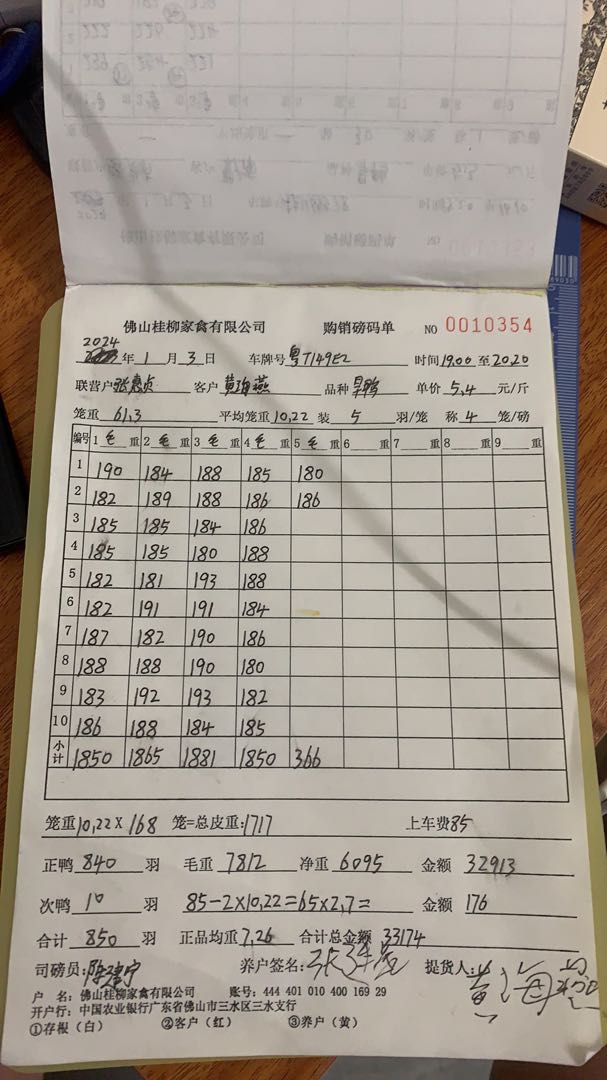 佛山桂柳家禽有限公司 购销磅码单 NO 0010354
2024 年 1 月 3 日 车牌号 粤T149E2 时间 19.00 至 20.20
联营户 张惠贞 客户 黄海燕 品种 旱鸭 单价 5,4 元/斤
笼重 61,3 平均笼重 10,22 装 5 羽/笼 称 4 笼/磅
编号 1 毛 重 2 毛 重 3 毛 重 4 毛 重 5 毛 重 6 重 7 重 8 重 9 重
1 190 184 188 185 180
2 182 189 188 186 186
3 185 185 184 186
4 185 185 180 188
5 182 181 193 188
6 182 191 191 184
7 187 182 190 186
8 188 188 190 180
9 183 192 193 182
10 186 188 184 185
小计 1850 1865 1881 1850 366
笼重 10,22 X 168 笼=总皮重: 1717 上车费 85
正鸭 840 羽 毛重 7812 净重 6095 金额 32913
次鸭 10 羽 85-2X10,22=65X2,7= 金额 176
合计 850 羽 正品均重 7,26 合计总金额 33174
司磅员: 养户签名: 提货人:
户 名: 佛山桂柳家禽有限公司 账号: 444 401 010 400 169 29
开户行: 中国农业银行广东省佛山市三水区三水支行
①存根（白） ②客户（红） ③养户（黄）